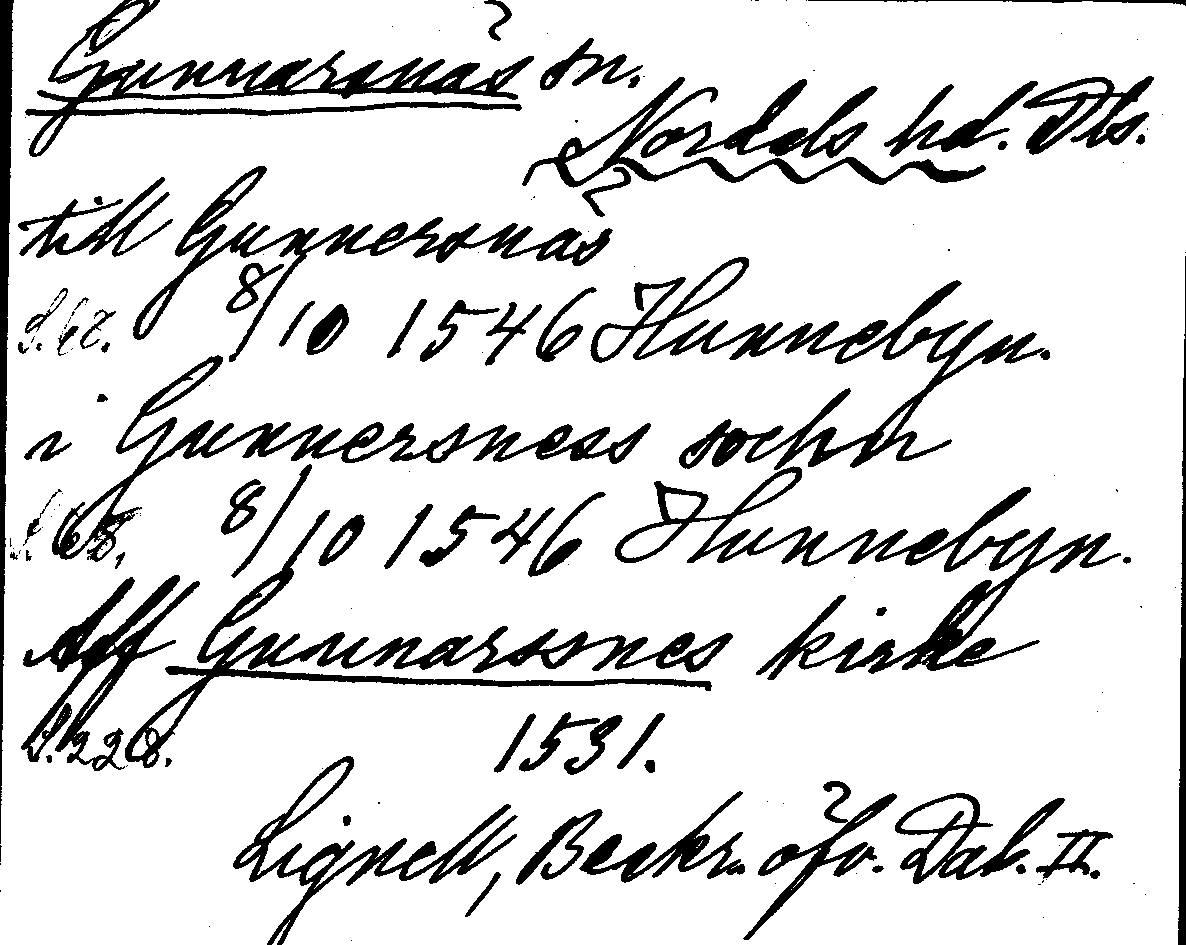 Gunnarsnäs sn.
Nordals hd. Dls.
till Gunnersnäs
S. 68. 8/10 1546 Hunnebyn.
i Gunnersness sochn
S. 68. 8/10 1546 Hunnebyn.
Aff Gunnarssnes kirke
S. 228. 1531.
Lignell, Beskr. öfv. Dal. II.